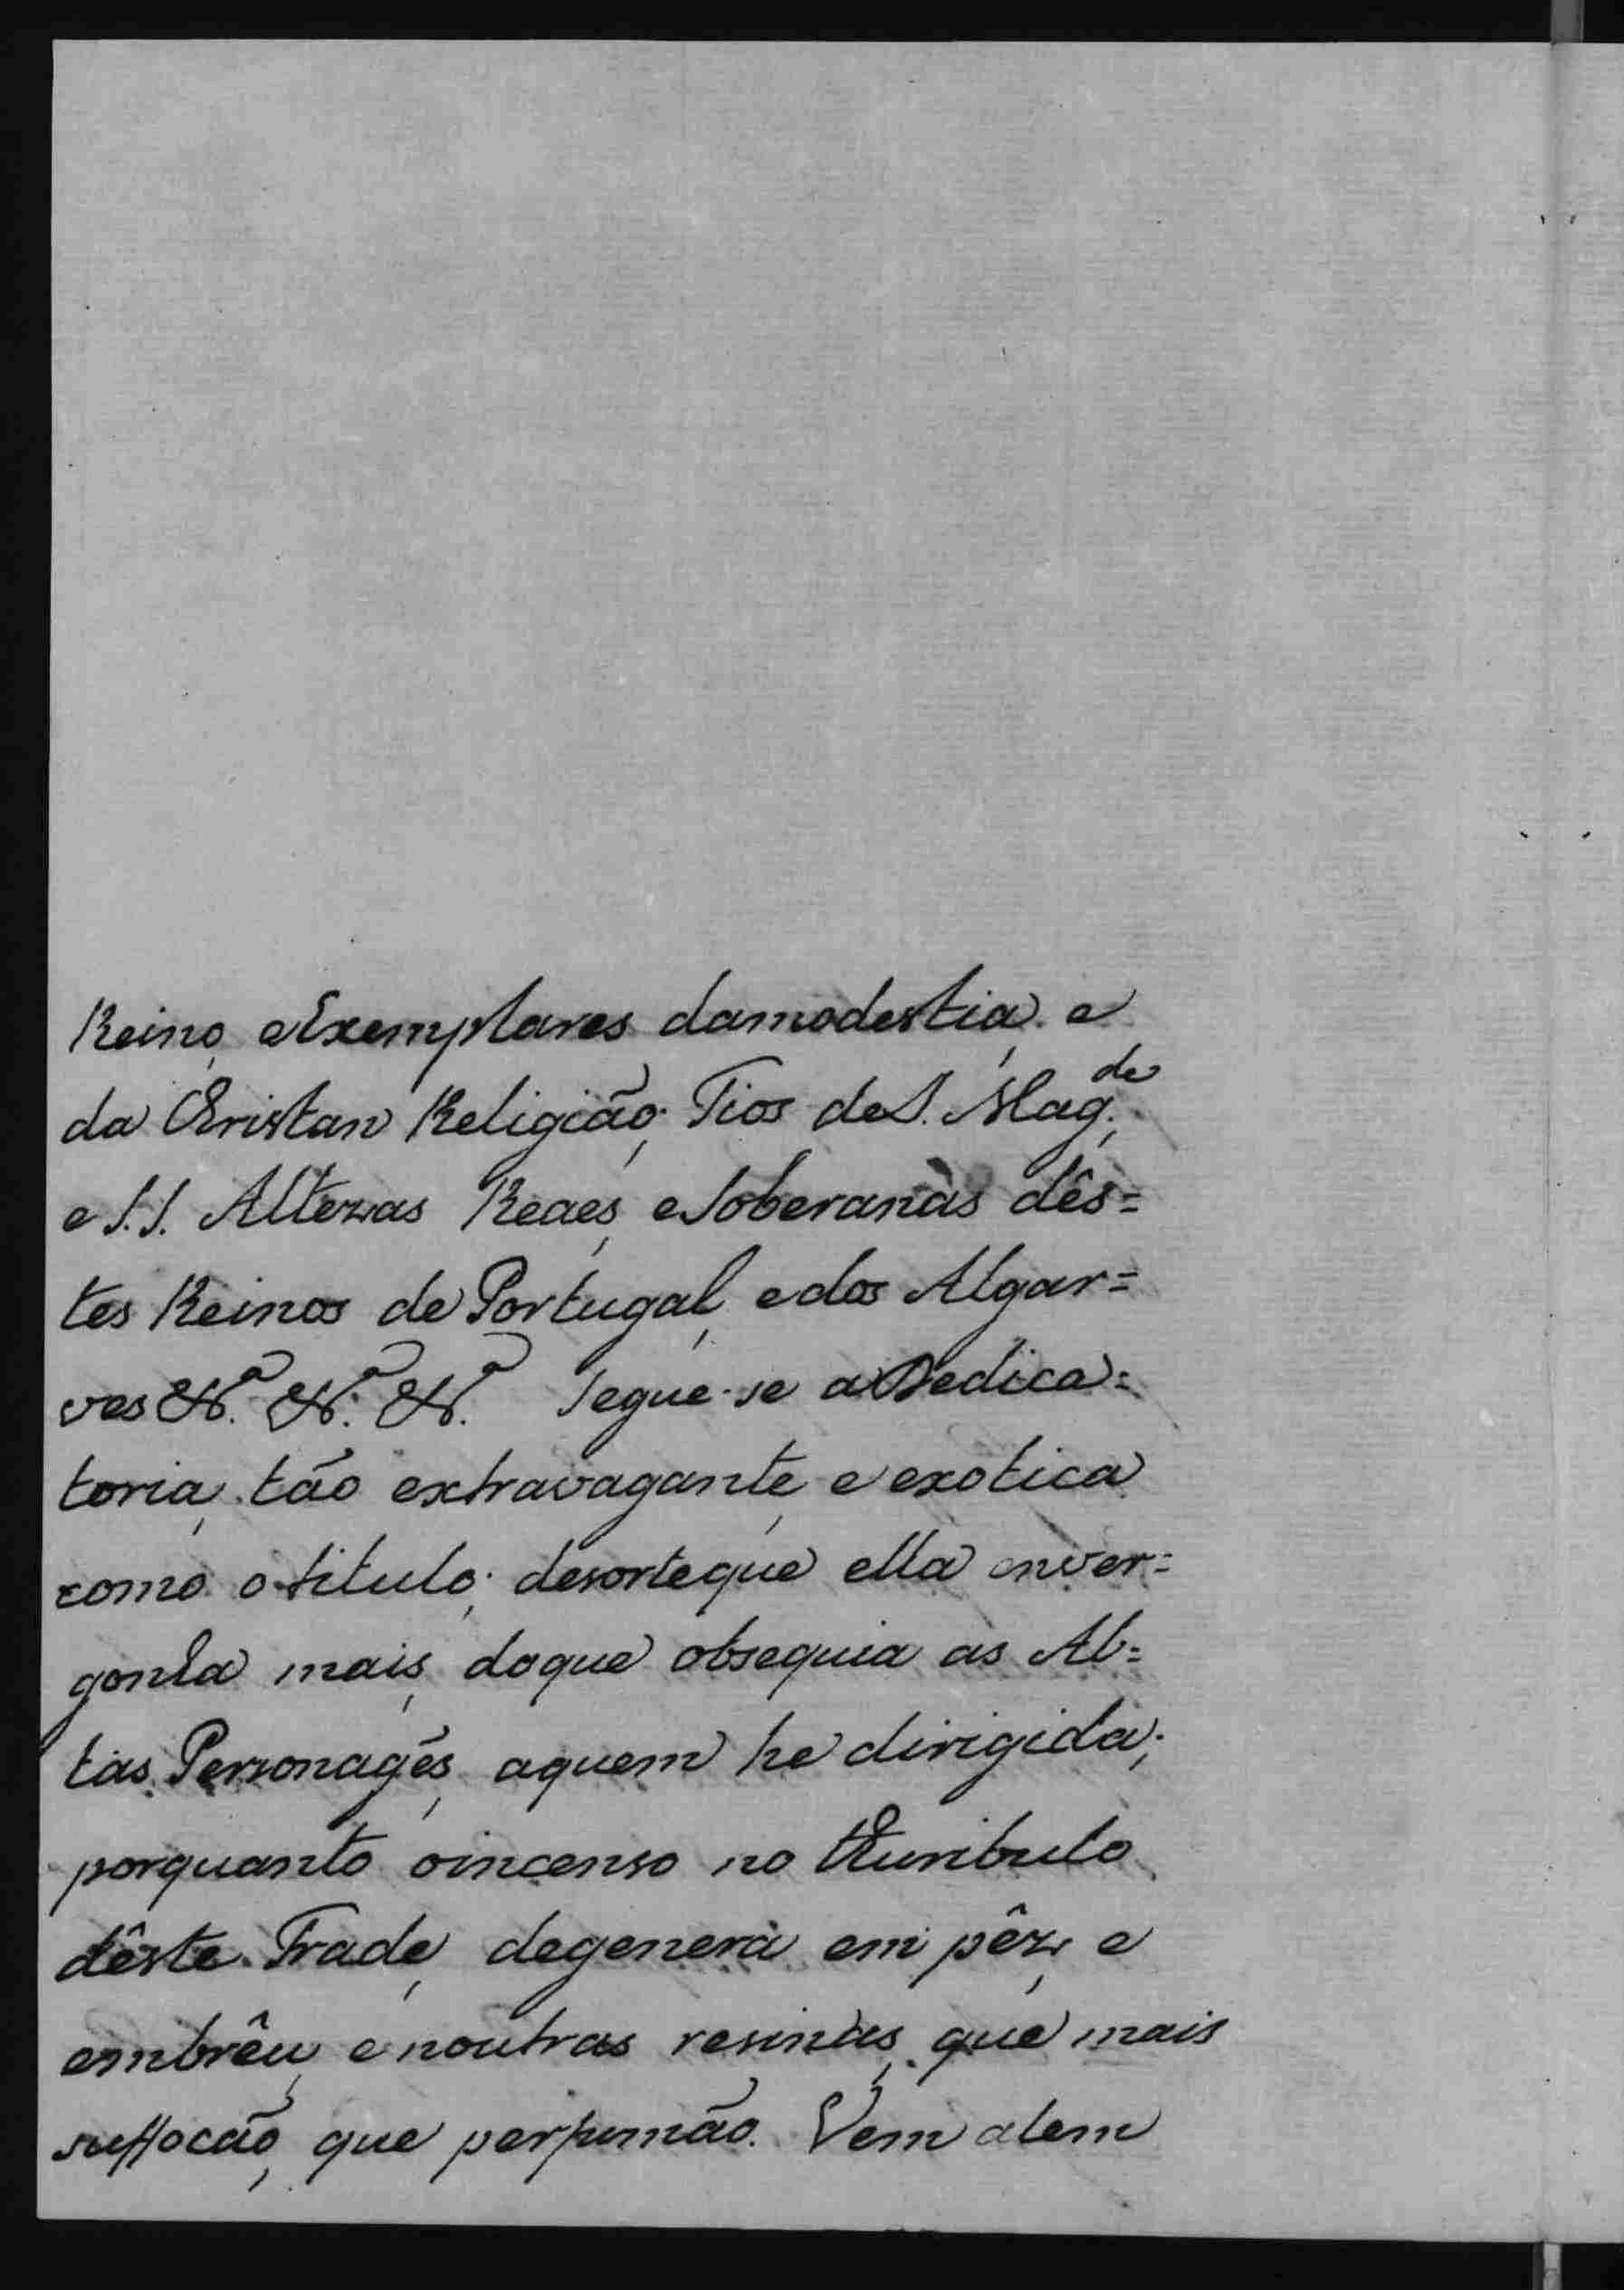 Reino, e Exemplares da modestia, e
da Christan Religião; Tios de S. Mag.de,
e S.S. Altezas Reaes, e Soberanas dês=
tes Reinos de Portugal, e dos Algar=
ves &.ª &.ª &.ª Segue-se a Dedica=
toria, tão extravagante, e exotica
como o titulo; desorteque ella enver=
gonha mais, doque obsequia as Al=
tas Personagẽs, aquem he dirigida;
porquanto oincenso no thuribulo
dêste Frade, degenera em pêz, e
embrêu, e noutras resinas, que mais
suffocão, que perfumão. Vem alem